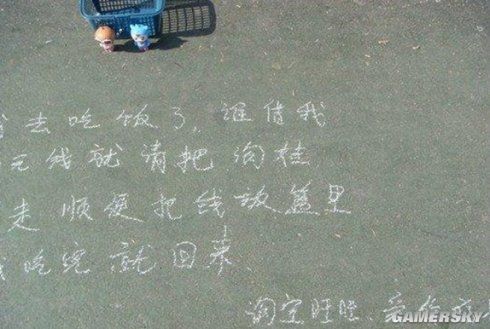 我去吃饭了,谁借我
元钱就请把
走顺便把钱放篮里
我吃完就回来、
淘宝旺旺、
GAMERSKY